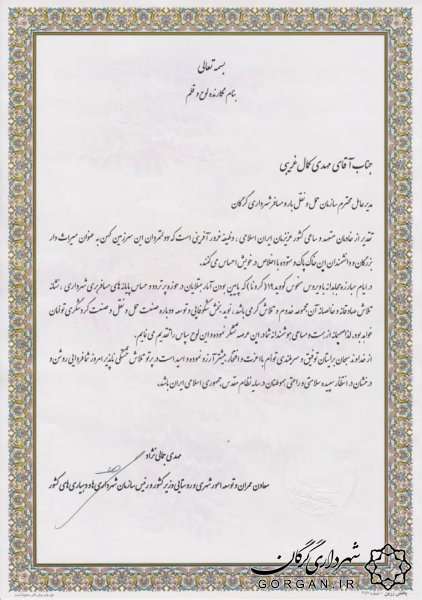 بسمه تعالی
بنام نگارنده لوح و قلم
جناب آقای مهدی کمال غریبی
مدیرعامل محترم سازمان حمل و نقل بار و مسافر شهرداری گرگان
تقدیر از خادمان متعهد و ساعی کشور عزیزمان ایران اسلامی ، وظیفه غرور آفرینی است که دولتمردان این سرزمین کهن به عنوان میراث دار
بزرگان و دانشمندان این خاک پاک و ستوده با اخلاص در خویش احساس می کنند.
در ایام مبارزه مجاهدانه با ویروس منحوس کووید ۱۹ (کرونا) که پایین بودن آمار مبتلایان در حوزه پر تردد و حساس پایانه های مسافربری شهرداری ، نشانه
تلاش صادقانه و خالصانه آن مجموعه خدوم و تلاش گر می باشد ، نوید بخش شکوفایی و توسعه دوباره صنعت حمل و نقل و صنعت گردشگری توأمان
خواهد بود. لذا صمیمانه از زحمت و مساعی هوشمندانه شما در این عرصه تشکر نموده و این لوح سپاس را تقدیم می نمایم.
از خداوند سبحان برایتان توفیق و سربلندی توأم با عزت و افتخار بیشتر آرزو نموده و امید است در پرتو تلاش خستگی ناپذیر امروز شما فردایی روشن و
درخشان در انتظار سپیده سلامتی و راحتی هموطنان در سایه نظام مقدس جمهوری اسلامی ایران باشد.
مهدی جمالی نژاد
معاون عمران و توسعه امور شهری و روستایی وزیر کشور و رئیس سازمان شهرداری ها و دهیاری های کشور
شهرداری گرگان
GORGAN.IR